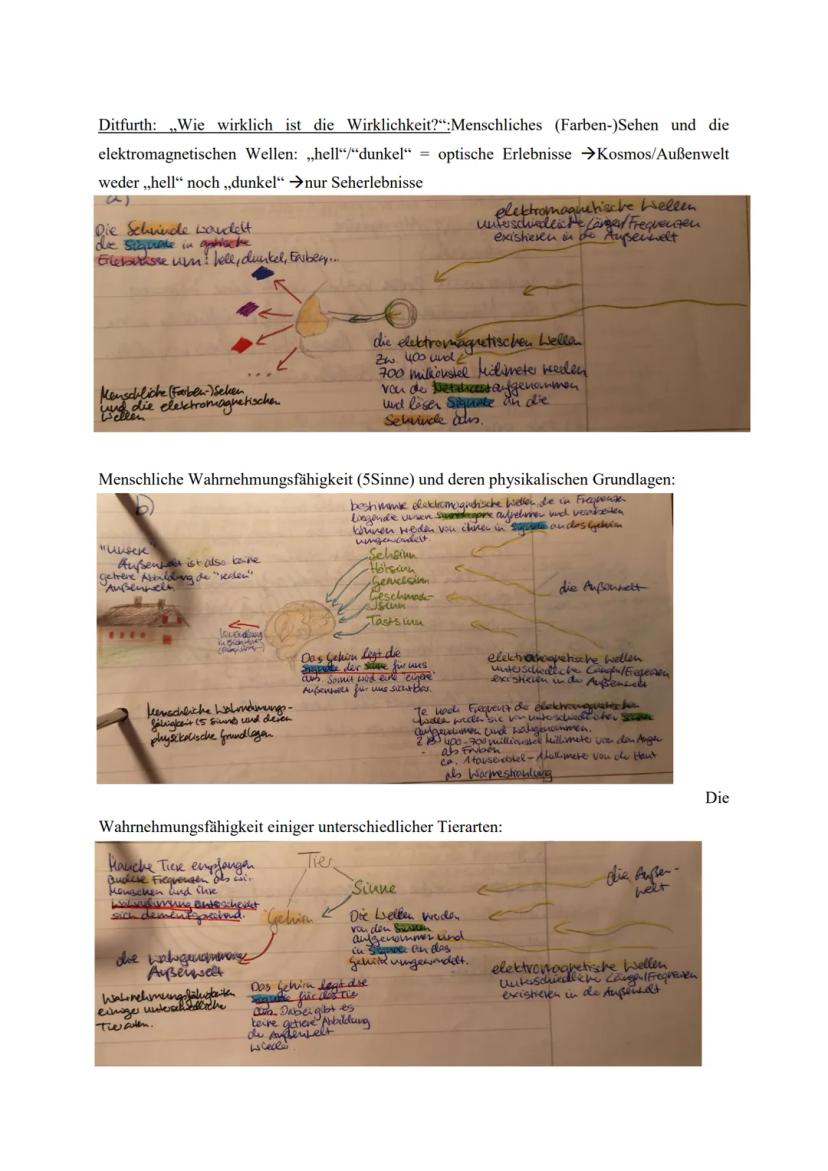 Ditfurth: „Wie wirklich ist die Wirklichkeit?“:Menschliches (Farben-)Sehen und die
elektromagnetischen Wellen: „hell“/“dunkel“ = optische Erlebnisse →Kosmos/Außenwelt
weder „hell“ noch „dunkel“ →nur Seherlebnisse
a)
Die Sehrinde wandelt
die Signale in optische
Erlebnisse um: hell, dunkel, Farben...
elektromagnetische Wellen
unterschiedliche Längen/Frequenzen
existieren in der Außenwelt
die elektromagnetischen Wellen
zw. 400 und
700 millionstel Millimeter werden
von der Netzhaut aufgenommen
und lösen Signale an die
Sehrinde aus.
...
Menschliche (Farben-)Sehen
und die elektromagnetischen
Wellen
Menschliche Wahrnehmungsfähigkeit (5Sinne) und deren physikalischen Grundlagen:
b)
bestimmte elektromagnetische Wellen, die in Frequenzen
liegen die unsere Sinnesorgane aufnehmen und verarbeiten
können werden von ihnen in Signale an das Gehirn
umgewandelt.
"Unsere"
Außenwelt ist also keine
getreue Abbildung der "realen"
Außenwelt.
Sehsinn
Hörsinn
Geruchsinn
Geschmack-
sinn
Tastsinn
die Außenwelt
Das Gehirn legt die
Signale der Sinne für uns
aus. Somit wird eine "eigene"
Außenwelt für uns sichtbar.
elektromagnetische Wellen
unterschiedliche Längen/Frequenzen
existieren in der Außenwelt
Menschliche Wahrnehmungs-
fähigkeit (5 Sinne) und deren
physikalische Grundlagen.
Je nach Frequenz der elektromagnetischen
Wellen werden sie von unterschiedlichen Sinnen
aufgenommen und wahrgenommen.
z.B. 400-700 millionstel Millimeter von den Augen
als Farben
ca. 1 tausendstel - 1 Millimeter von der Haut
als Wärmestrahlung
Die
Wahrnehmungsfähigkeit einiger unterschiedlicher Tierarten:
Manche Tiere empfangen
andere Frequenzen als wir
Menschen und ihre
Wahrnehmung unterscheidet
sich dementsprechend.
Tier
Sinne
Gehirn
die Außen-
welt
Die Wellen werden
von den Sinnen
aufgenommen und
in Signale an das
Gehirn umgewandelt.
die wahrgenommene
Außenwelt
elektromagnetische Wellen
unterschiedliche Längen/Frequenzen
existieren in der Außenwelt
Wahrnehmungsfähigkeiten
einiger unterschiedliche
Tierarten.
Das Gehirn legt die
Signale für das Tier
aus. Dabei gibt es
keine getreue Abbildung
der Außenwelt
wieder.